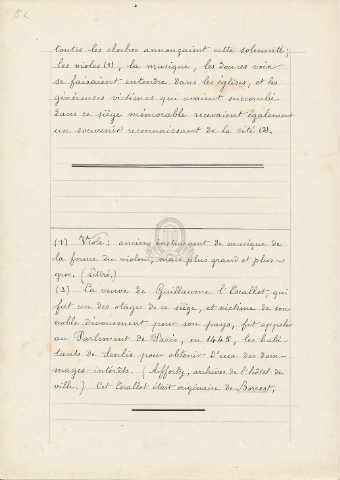 toutes les cloches annonçaient cette solennité;
les violes (1), la musique, les douces voix
se faisaient entendre dans les églises, et les
généreuses victimes qui avaient succombé
dans ce siège mémorable recevaient également
un souvenir reconnaissant de la cité (2).
(1) Viole: ancien instrument de musique de
la forme du violon, mais plus grand et plus
gros. (Littré.)
(2) La veuve de Guillaume l'Escallot qui
fut un des otages de ce siège, et victime de son
noble dévouement pour son pays, fit appeler
au Parlement de Paris, en 1445, les habi-
tants de Senlis pour obtenir d'eux des dom-
mages-intérêts. (Afforty, archives de l'hôtel de
ville.) Cet Escallot était originaire de Borest.